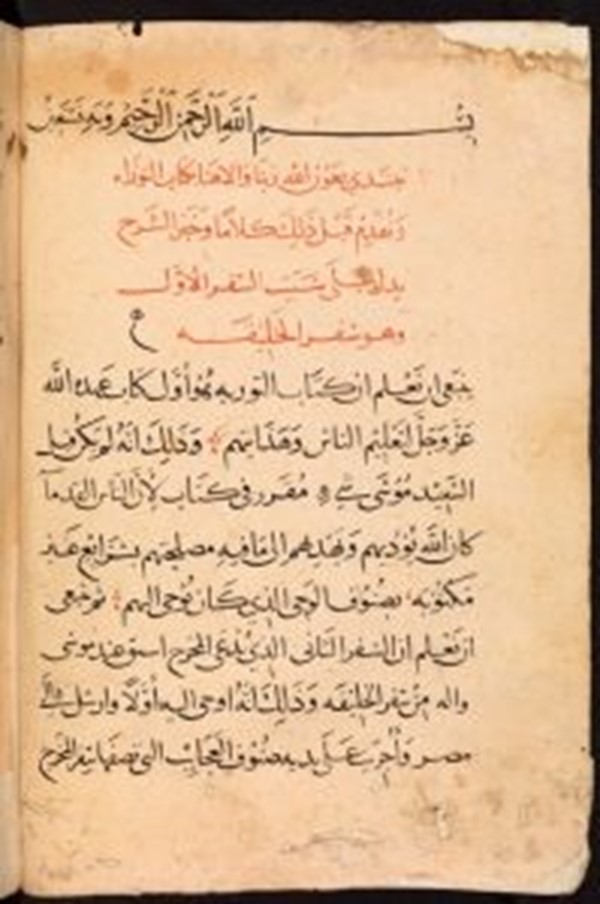 بسم الله الرحمن الرحيم وبه نستعين
نبتدي بعون الله ربنا والاهنا بكتاب التوراه
ونقدم قبل ذلك كلاما وجيز الشرح
يدل على سبب السفر الاول
وهو سفر الخليقه
ينبغي ان نعلم ان كتاب التوريه هو اول كتاب عمده الله
عز وجل لتعليم الناس وهذايتهم وذلك انه لم يكن قبل
السيد موسى شي مصور في كتاب لان الناس القدما
كان الله يوديهم ويهديهم الى ما فيه مصلحتهم بشرايع غير
مكتوبه بصنوف الوحي الذي كان يوحى اليهم ثم ينبغي
ان نعلم ان السفر الثاني الذي يدعى المخرج اسبق عند موسى
واله من سفر الخليقه وذلك انه اوحى اليه اولا وارسل الى
مصر واجرى على يديه صنوف العجايب التي تصفها سفر المخرج